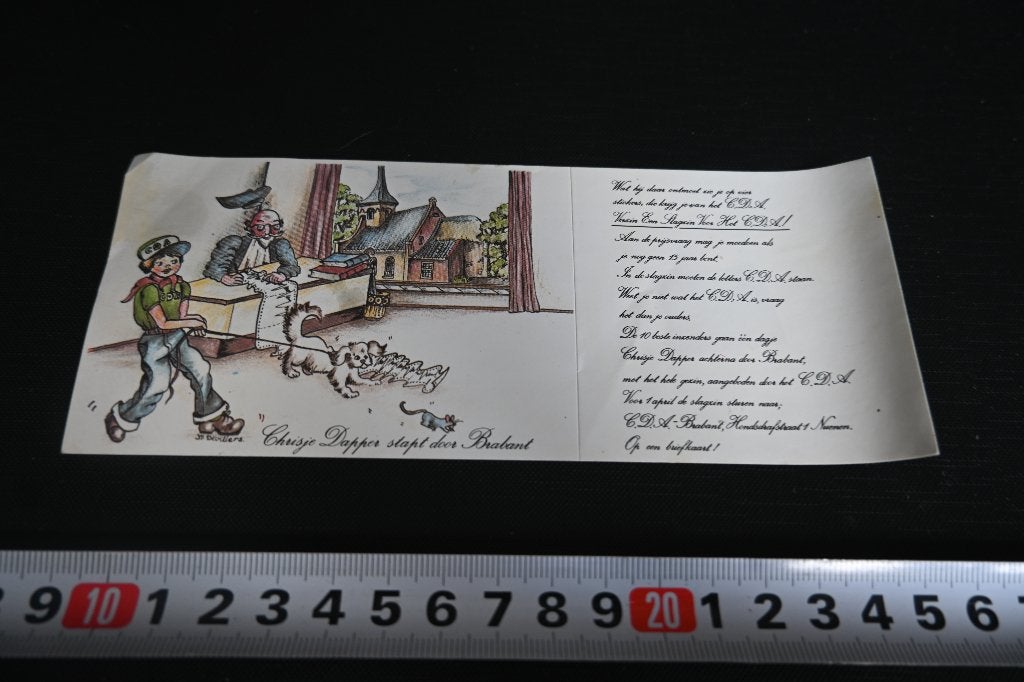 CDA
CDA
JB Devillers
Chrisje Dapper stapt door Brabant
Wat hij daar ontmoet zie je op vier
stickers, die krijg je van het C.D.A.
Verzin Een Slagzin Voor Het C.D.A!
Aan de prijsvraag mag je meedoen als
je nog geen 15 jaar bent.
In de slagzin moeten de letters C.D.A. staan.
Weet je niet wat het C.D.A is, vraag
het dan je ouders.
De 10 beste inzenders gaan één dagje
Chrisje Dapper achterna door Brabant,
met het hele gezin, aangeboden door het C.D.A.
Voor 1 april de slagzin sturen naar;
C.D.A.-Brabant, Hondsdrafstraat 1 Nuenen.
Op een briefkaart!
9 10 1 2 3 4 5 6 7 8 9 20 1 2 3 4 5 6